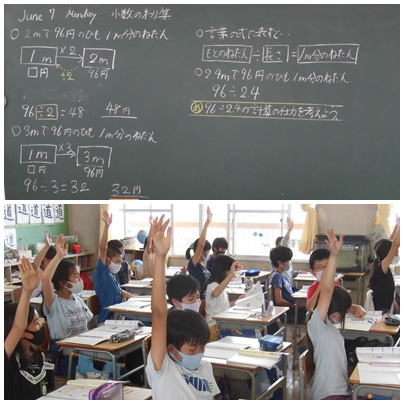 June 7 Monday 小数のわり算
○2mで96円のひも 1m分のねだん
1m ×2 2m
□円 ÷2 96円
96÷2=48 48円
○3mで96円のひも 1m分のねだん
1m ×3 3m
□円 96円
96÷3=32 32円
○言葉の式に表すと…
もとのねだん÷長さ=1m分のねだん
○2.4mで96円のひも 1m分のねだん
96÷2.4
め 96÷2.4の計算の仕方を考えよう
道 道 道 道